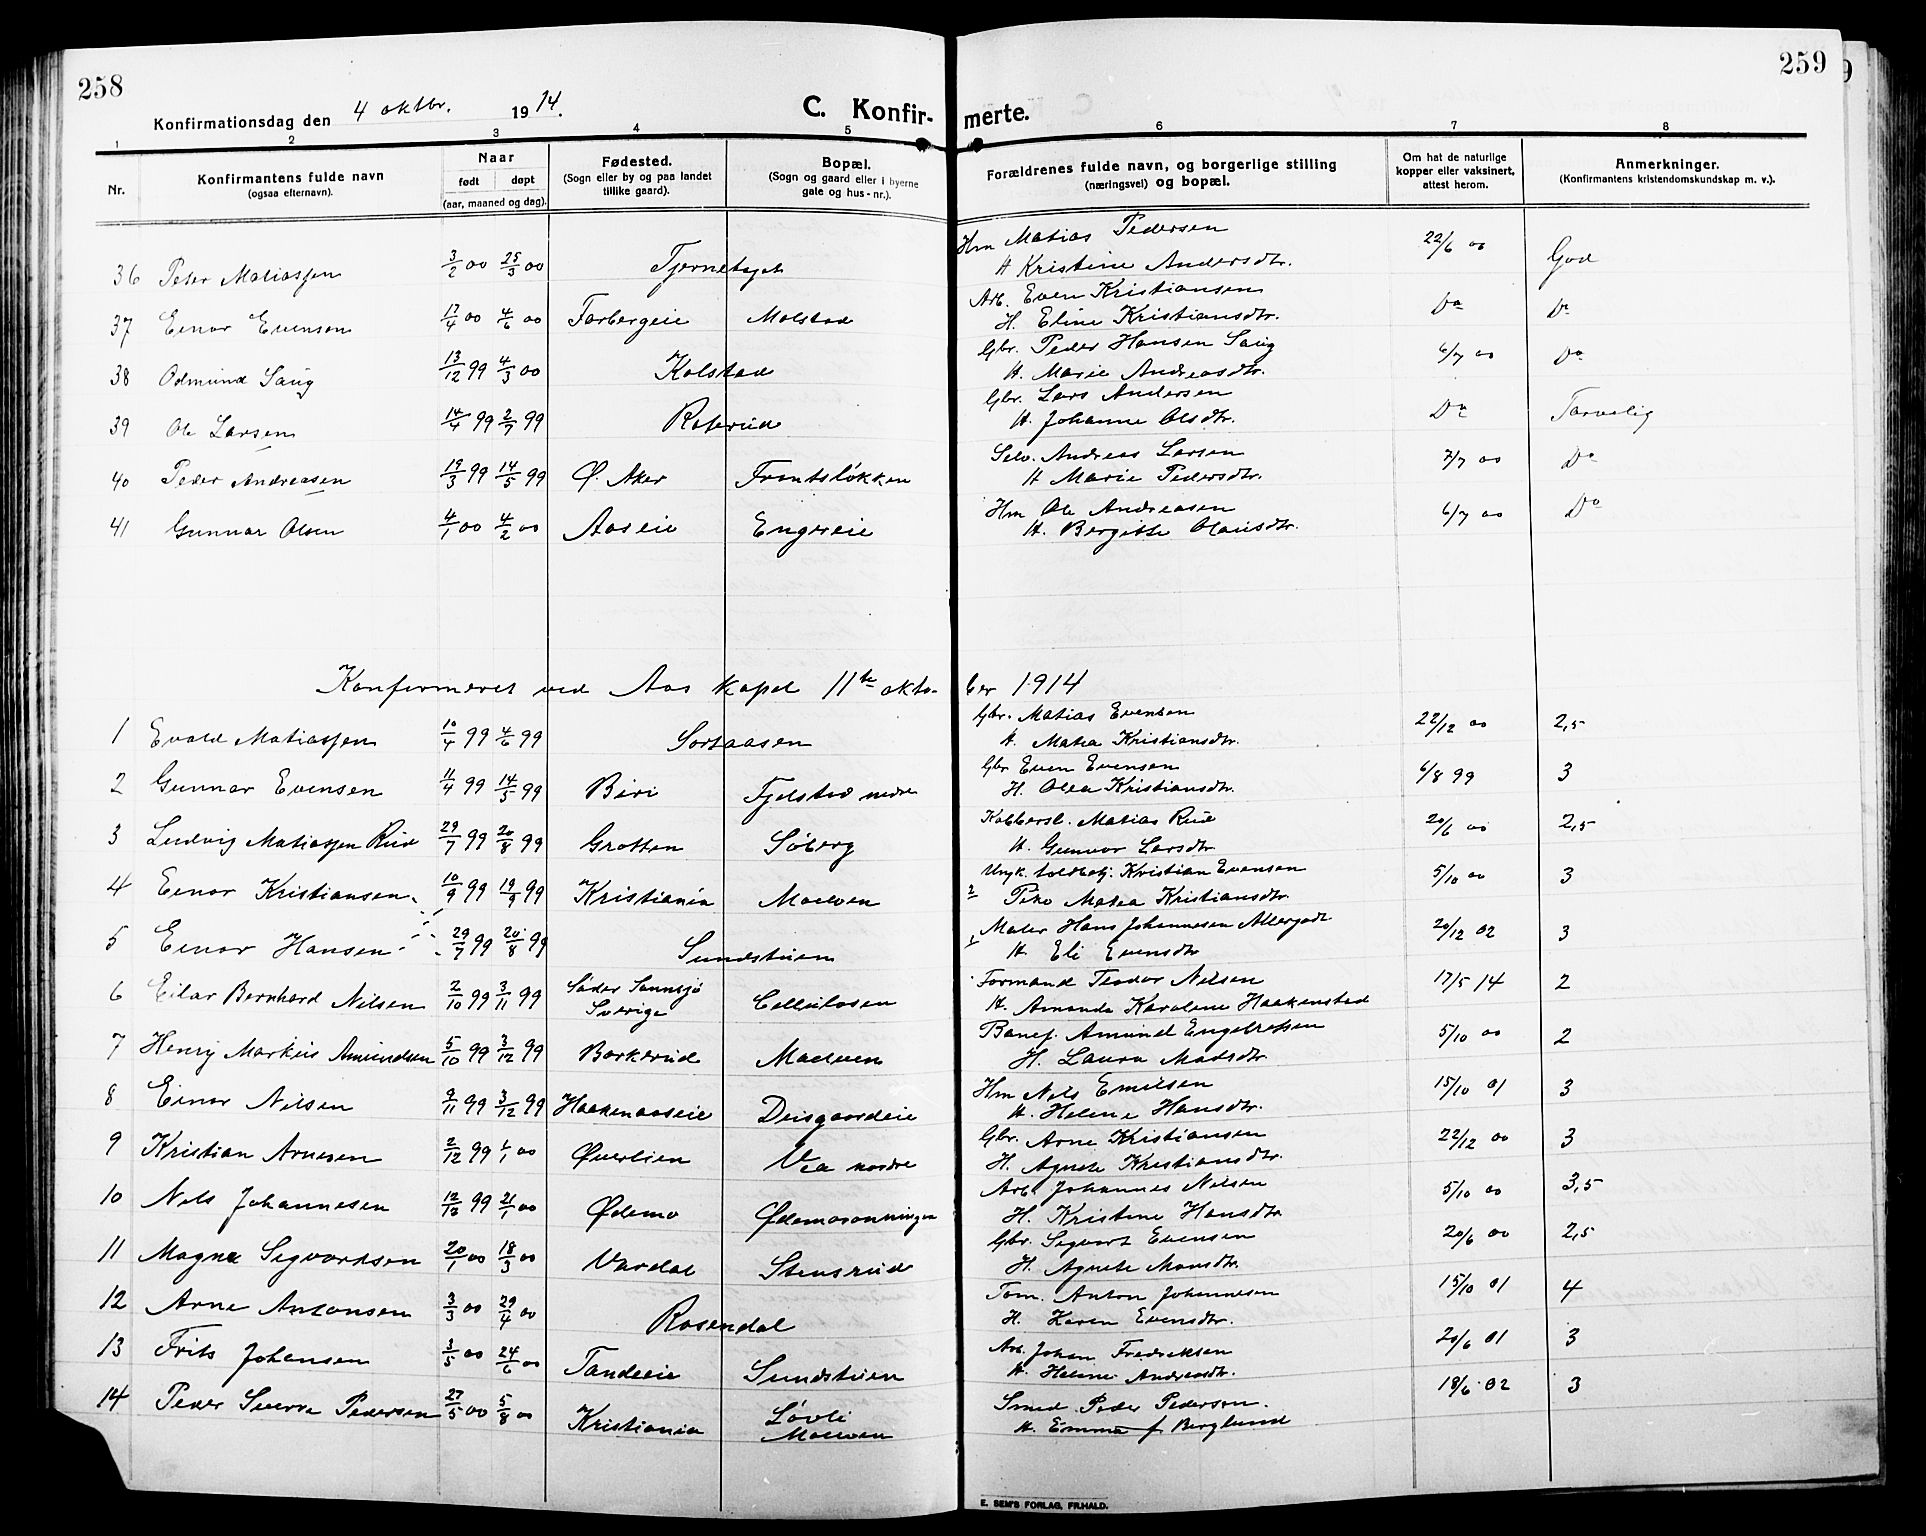 258
259
Konfirmationsdag den 4 oktbr. 1914.
C. Konfirmerte.
1 2 3 4 5 6 7 8
Nr.
Konfirmantens fulde navn
(ogsaa efternavn).
Naar
født døpt
(aar, maaned og dag).
Fødested.
(Sogn eller by og paa landet
tillike gaard).
Bopæl.
(Sogn og gaard eller i byerne
gate og hus-nr.).
Forældrenes fulde navn, og borgerlige stilling
(næringsvei) og bopæl.
Om hat de naturlige
kopper eller vaksinert,
attest herom.
Anmerkninger.
(Konfirmantens kristendomskundskap m. v.).
36 Peter Matiassen 3/2 00 25/3 00 Tjernetaget Hm Matias Pedersen 22/6 00 God
H Kristine Andersdtr.
37 Einar Evensen 17/4 00 4/6 00 Farbergeie Molstad Arb. Even Kristiansen Do Do
H. Eline Kristiansdtr.
38 Odmund Saug 13/12 99 4/3 00 Kolstad Gbr. Peder Hansen Saug 6/7 00 Do
H. Marie Andreasdtr.
39 Ole Larsen 14/4 99 2/7 99 Roterud Gbr. Lars Andersen Do Tarvelig
H. Johanne Olsdtr.
40 Peder Andreasen 19/3 99 14/5 99 Ø. Aker Frantsløkken Selv. Andreas Larsen 7/7 00 Do
H Marie Pedersdtr.
41 Gunnar Olsen 4/1 00 4/2 00 Aaseie Engereie Hm Ole Andreasen 6/7 00 Do
H. Bergitte Olausdtr.
Konfirmeret ved Aas kapel 11te oktober 1914
1 Evald Matiassen 10/4 99 4/6 99 Sortaasen Gbr. Matias Evensen 22/12 00 2,5
H. Matea Kristiansdtr.
2 Gunnar Evensen 11/4 99 14/5 99 Biri Fjelstad nedre Gbr Even Evensen 6/8 99 3
H. Olea Kristiansdtr.
3 Ludvig Matiassen Rud 29/7 99 20/8 99 Grotten Søberg Kobbersl. Matias Rud 20/6 00 2,5
H. Gunvor Larsdtr
4 Einar Kristiansen 10/9 99 19/9 99 Kristiania Moelven Ungk. toldbetj. Kristian Evensen 5/10 00 3
2 Pike Matea Kristiansdtr.
5 Einar Hansen 29/7 99 20/8 99 Sundstuen Maler Hans Johannesen Allergodt 20/12 02 3
1 H. Eli Evensdtr
6 Eilar Bernhard Nilsen 2/10 99 3/11 99 Söder Sunnsjö Sverige Cellulosen Formand Teodor Nilsen 17/5 14 2
H. Amanda Karoline Haakenstad
7 Henry Markus Amundsen 5/10 99 3/12 99 Borkerud Moelven Banef. Amund Engebretsen 5/10 00 2
H. Laura Madsdtr.
8 Einar Nilsen 9/11 99 3/12 99 Haakenaaseie Deisgaardeie Hm Nils Emilsen 15/10 01 3
H. Helene Hansdtr.
9 Kristian Arnesen 2/12 99 1/1 00 Øverlien Vea nordre Gbr. Arne Kristiansen 22/12 00 3
H. Agnete Kristiansdtr.
10 Nils Johannesen 12/12 99 21/1 00 Ødemo Ødemosanningen Arb. Johannes Nilsen 5/10 00 3,5
H. Kristine Hansdtr
11 Magne Segvartsen 20/1 00 18/3 00 Vardal Stensrud Gbr. Segvart Evensen 20/6 00 2,5
H. Agnete Mansdtr.
12 Arne Antonsen 3/3 00 29/4 00 Rosendal Tøm. Anton Johannesen 15/10 01 4
H. Karen Evensdtr.
13 Frits Johansen 3/5 00 24/6 00 Tandeeie Sundstuen Arb. Johan Fredriksen 20/6 01 3
H. Helene Andreasdtr.
14 Peder Sverre Pedersen 27/5 00 5/8 00 Kristiania Løvli Moelven Smed Peder Pedersen 18/6 02 3
H. Emma f Berglund
E. SEM'S FORLAG, FR.HALD.